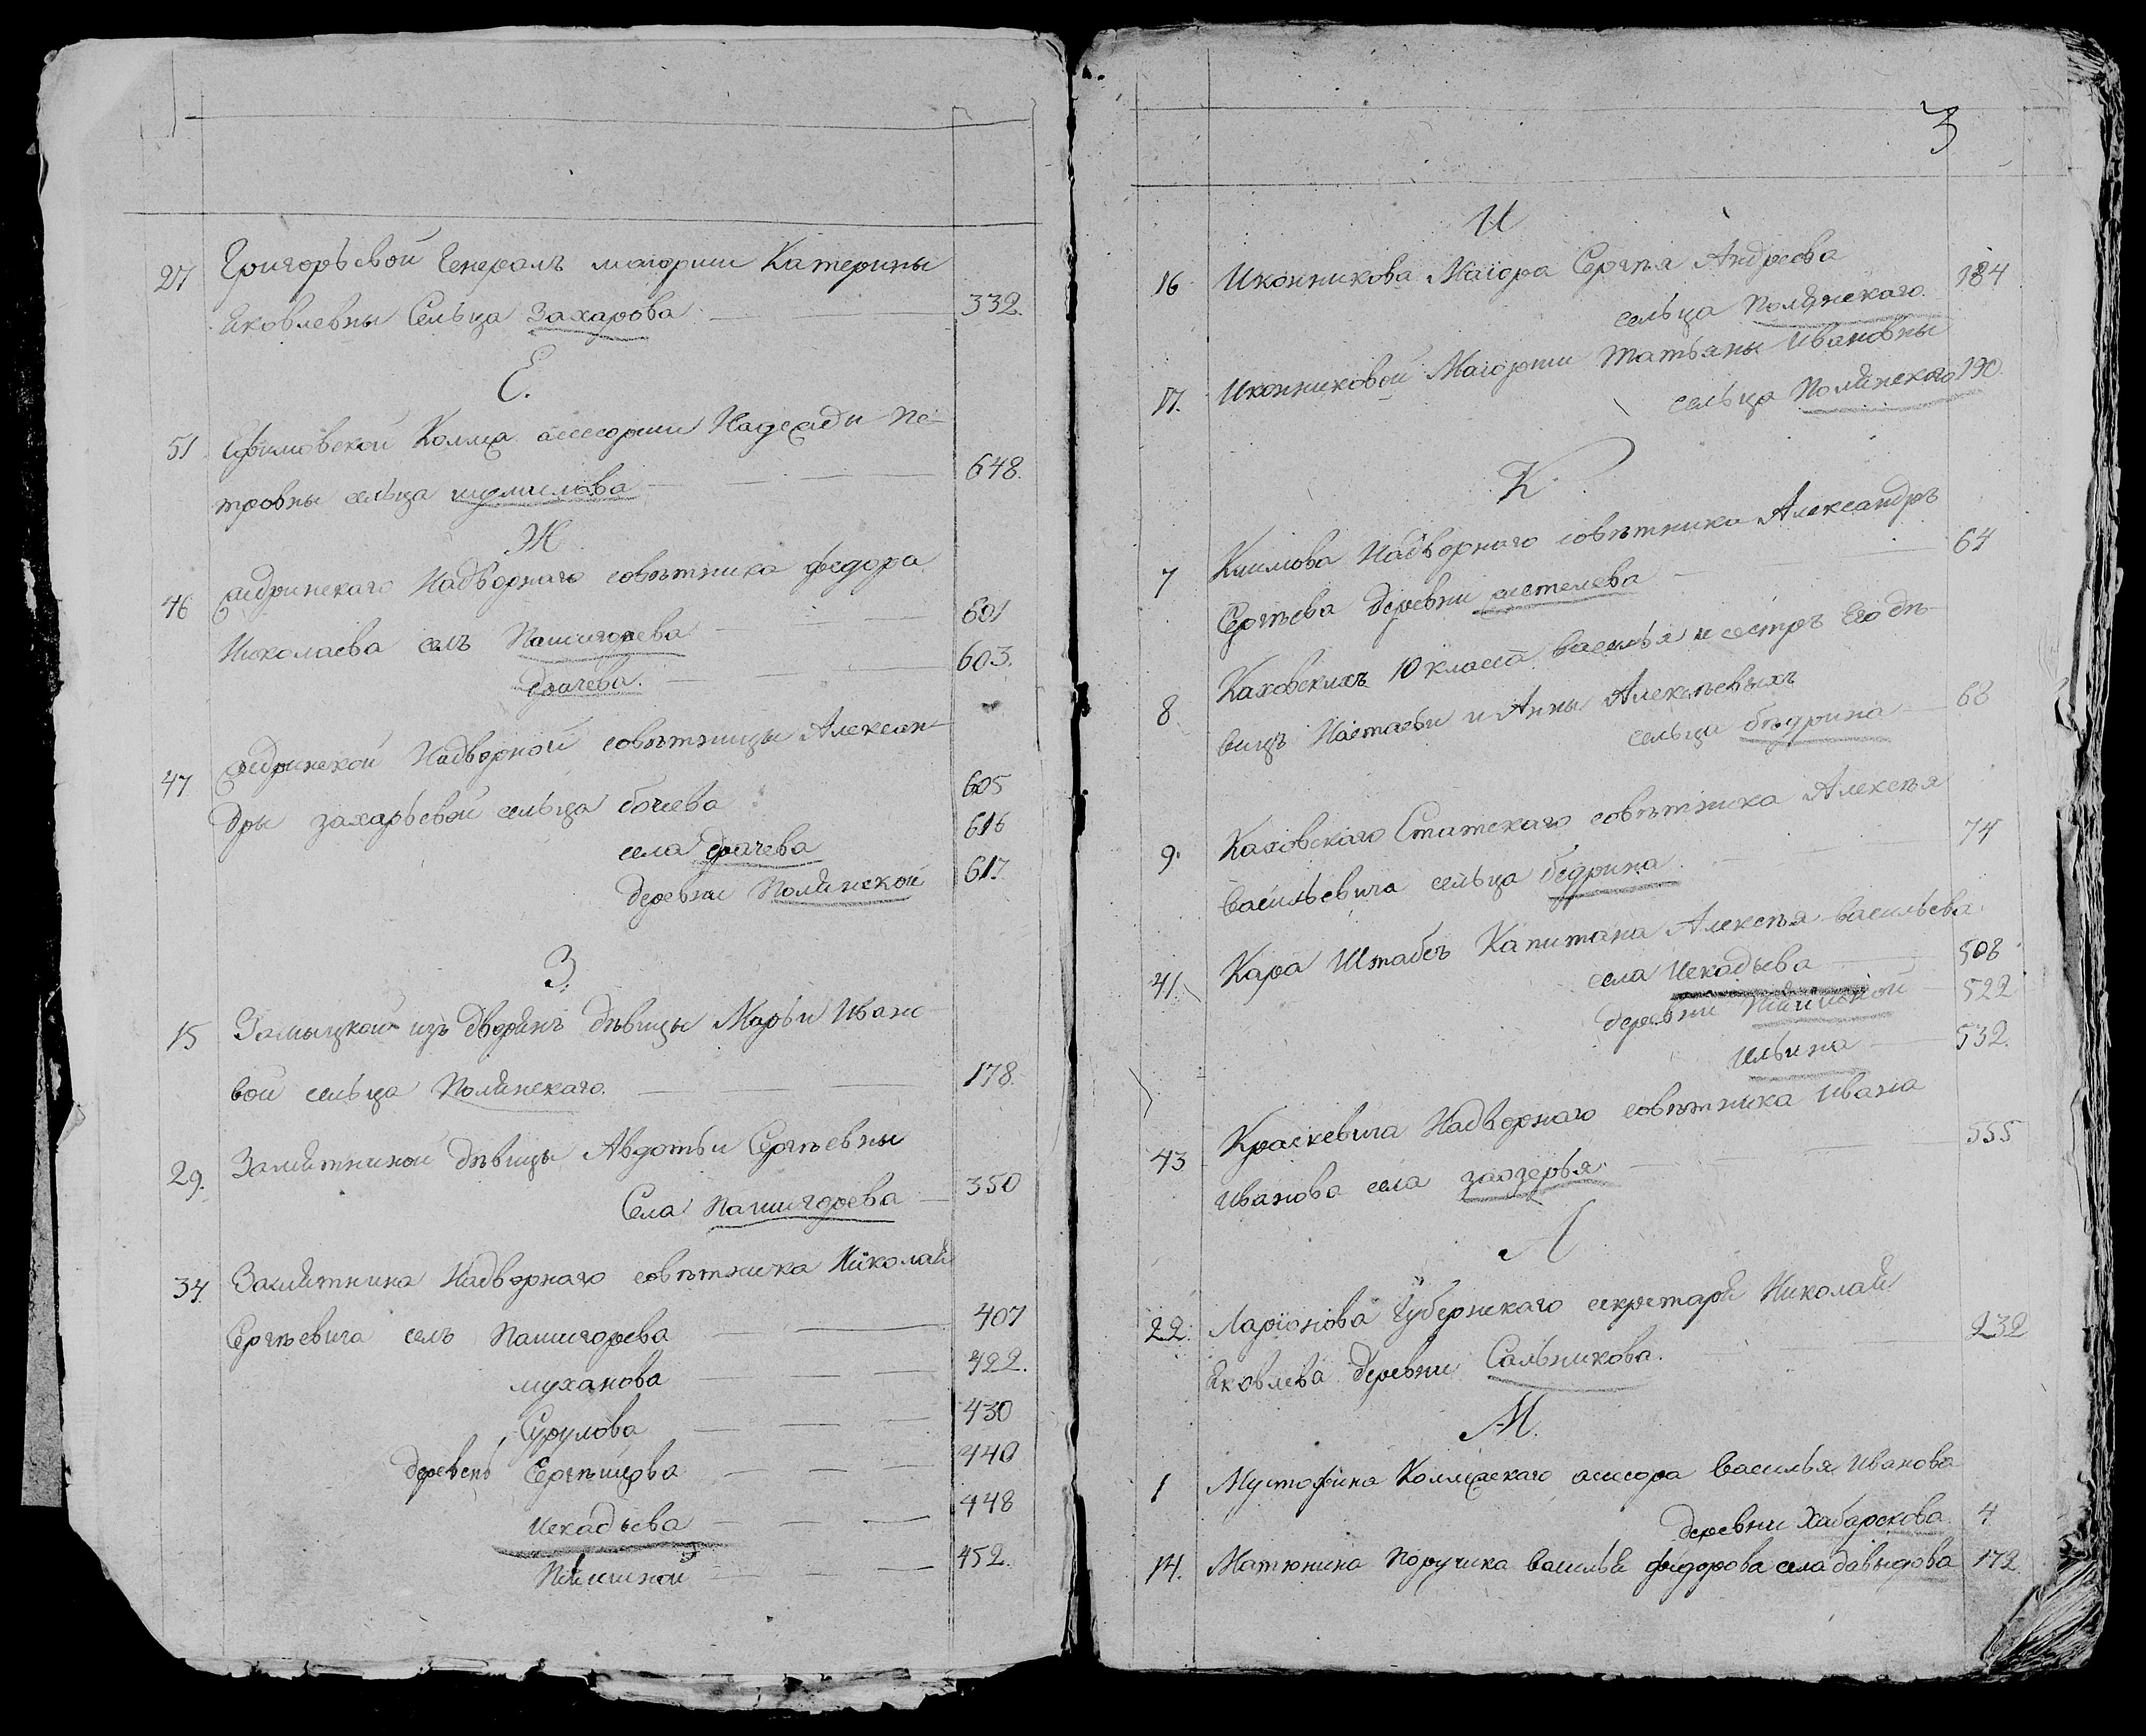 27 Григорьевой Генералъ маіорши Катерины
Яковлевны Сельца Захарова 332.
Е.
51 Ефимовской Коллеж. асессорши Надежди Пе-
тровны сельца шумилова 648.
Ж
46 Жедринскаго Надворнаго совѣтника Федора
Николаева селъ Пашигорева 601
Грачева. 603.
47 Жедринской Надворной совѣтницы Алексан-
дры Захарьевой сельца боиева 605
села грачева 616
деревни Полянской 617.
З.
15 Замыцкой изъ дворянъ дѣвицы Марьи Ивано
вой сельца Полянскаго. 178.
29. Замятниной дѣвицы Авдотьи Сергѣевны
Села Пашигорева 350
34 Замятнина Надворнаго совѣтника Николая
Сергѣевича селъ Пашигорева 407
муханова 422.
Сурулова 430
деревень 440
Чекадьева 448
452.
3
И
16 Иконникова Маіора Сергѣя Андреева
сельца Полянскаго. 184
17. Иконниковой Маіорши Татьяны Ивановны
сельца Полянскаго 190.
К.
7 Климова Надворнаго совѣтника Александръ
Сергѣева деревни 64
8. Каховскихъ 10 класса василья и сестръ Его дѣ-
вицъ Настасьи и Анны Алексѣевыхъ
сельца бѣдрина 68
9. Каховскаго Статскаго совѣтника Алексѣя
васильевича сельца бедрина 74
41. Кара Штабсъ Капитана Алексѣя васильева
села Чекадьева 508
деревни 522
Ильина 532.
43 Краскевича Надворнаго совѣтника Ивана
Иванова села заозерья 555
Л
22. Ларіонова Губернскаго секретаря Николая
Яковлева деревни Сальникова. 232
М.
1 Мустофина Коллежскаго асессора Василья Иванова
деревни Хабарскова 4
14. Матюнина Поручика Василья федорова села давыдова 172.